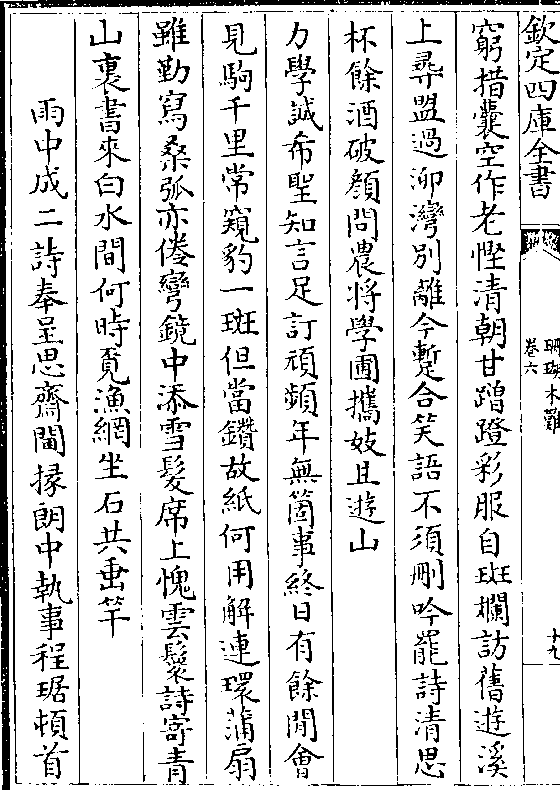 欽定四庫全書
珊瑚木難
卷六
十九
窮措囊空作老慳清朝甘蹭蹬彩服自斑斕訪舊遊溪
上尋盟過泖灣別離今蹔合笑語不須刪吟罷詩清思
杯餘酒破顏問農将學圃攜妓且遊山
力學誠希聖知言足訂頑頻年無箇事終日有餘閒會
見駒千里常窺豹一斑但當鑽故紙何用解連環蒲扇
雖勤寫桑弧亦倦彎鏡中添雪髪席上愧雲鬟詩寄青
山裏書來白水間何時覓漁網坐石共垂竿
雨中成二詩奉呈思齋閫掾朗中執事程琚頓首